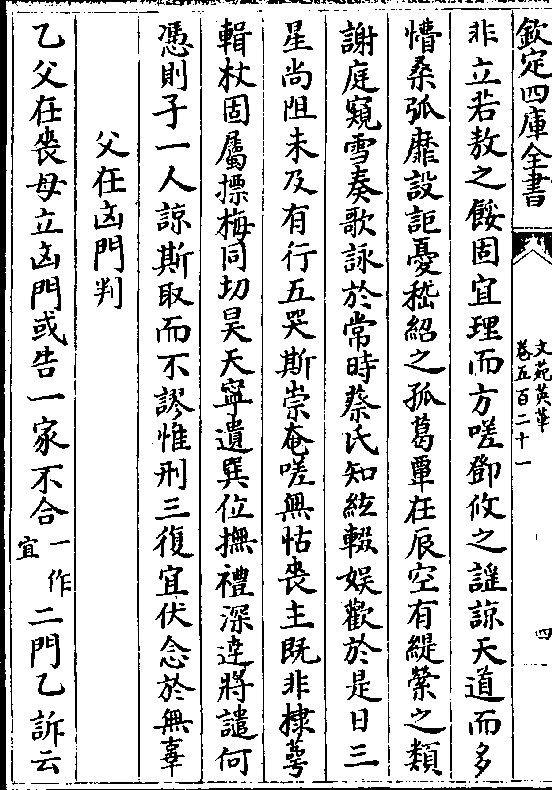 欽定四庫全書
文苑英華
卷五百二十一
四
非立若敖之餒固宜理而方嗟鄧攸之謡諒天道而多
懵桑弧靡設詎憂嵇紹之孤葛覃在辰空有緹縈之類
謝庭窺雪奏歌詠於常時蔡氏知絃輟娱歡於是日三
星尚阻未及有行五哭斯崇奄嗟無怙喪主既非棣蕚
輯杖固屬摽梅同切昊天寧遺巽位撫禮深違將譴何
憑則子一人諒斯取而不謬惟刑三復宜伏念於無辜
父在凶門判
乙父在喪母立凶門或告一家不合一作宜二門乙訴云